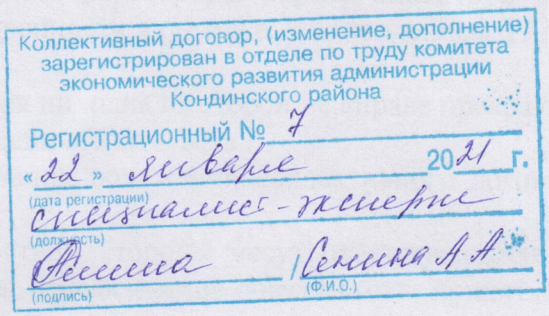 Коллективный договор, (изменение, дополнение)
зарегистрирован в отделе по труду комитета
экономического развития администрации
Кондинского района
Регистрационный № 7
«22» января 2021 г.
(дата регистрации)
специалист-эксперт
(должность)
/ Сенина А А
(подпись) (Ф.И.О.)